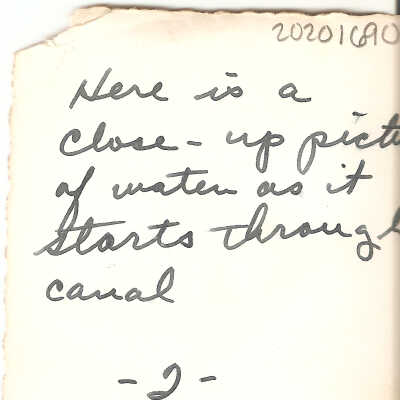 20201690
Here is a
close-up pictu
of water as it
starts through
canal
-2-